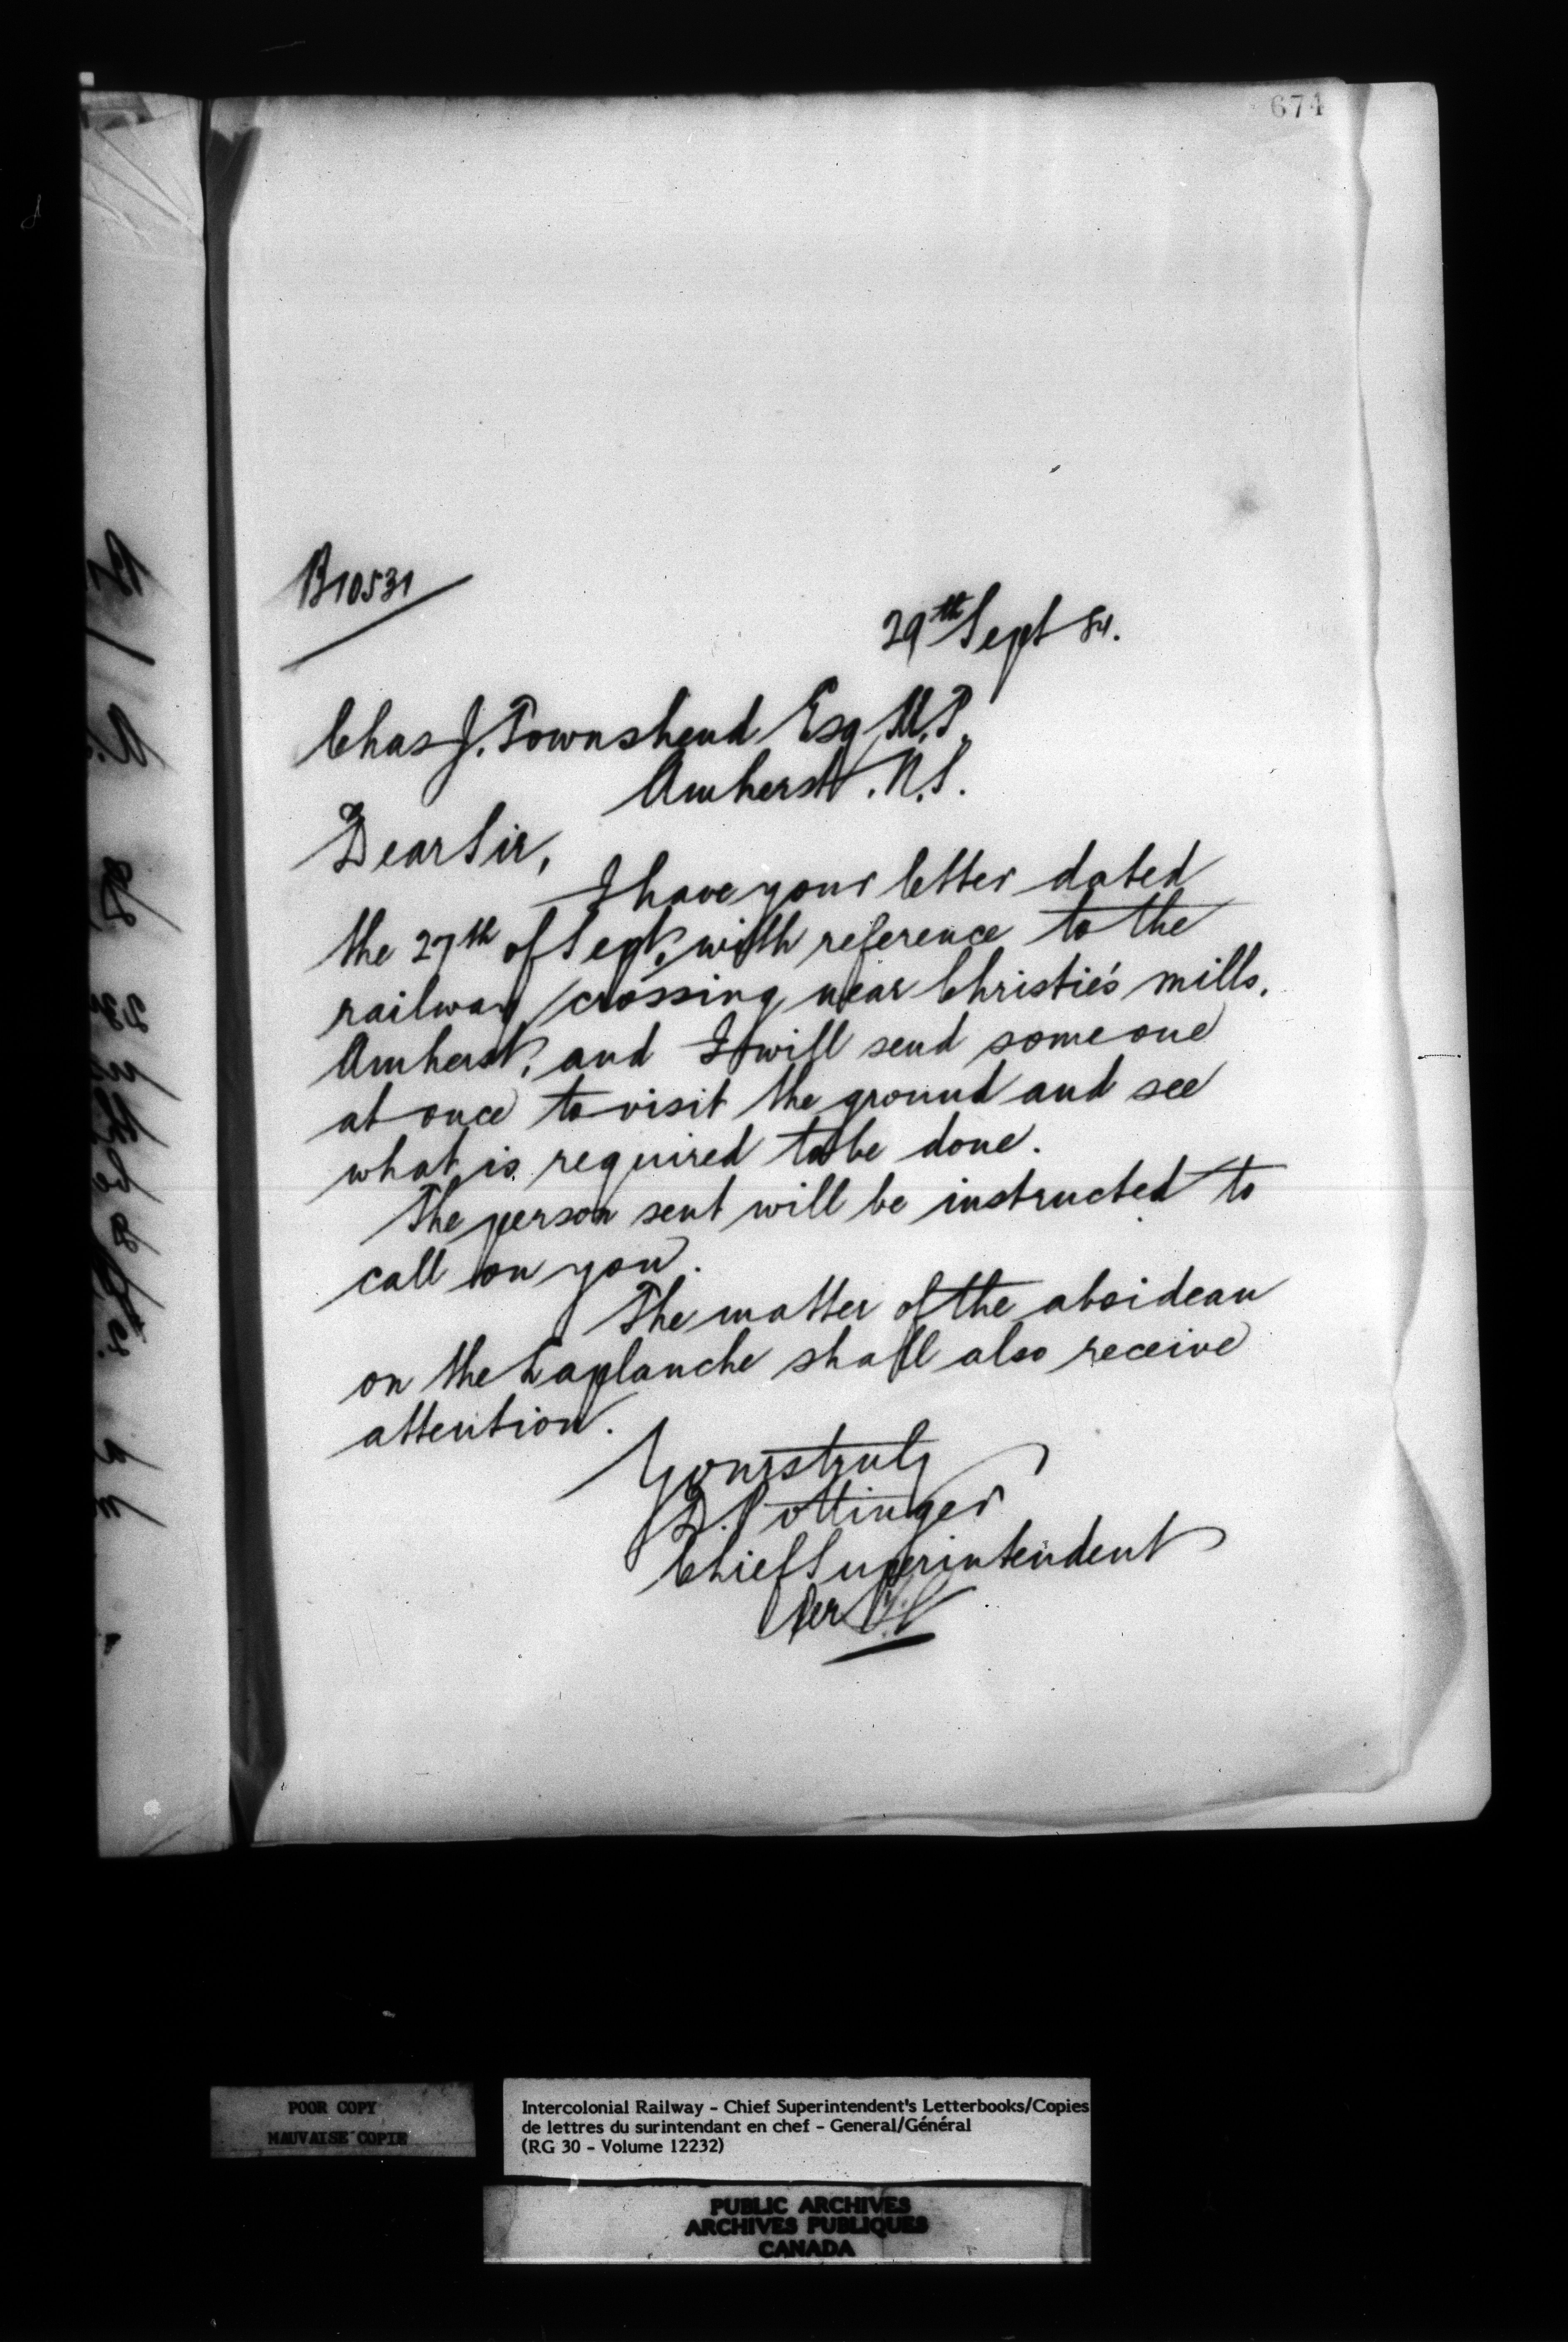 674
B10531
29th Sept 84.
Chas J. Townshend Esq M.P.
Amherst. N.S.
Dear Sir,
I have your letter dated
the 27th of Sept. with reference to the
railway crossing near Christie's mills,
Amherst, and I will send some one
at once to visit the ground and see
what is required to be done.
The person sent will be instructed to
call on you.
The matter of the aboideau
on the Laplanche shall also receive
attention.
Yours truly
D. Pottinger
Chief Superintendent
Per
POOR COPY
MAUVAISE COPIE
Intercolonial Railway - Chief Superintendent's Letterbooks/Copies
de lettres du surintendant en chef - General/Général
(RG 30 - Volume 12232)
PUBLIC ARCHIVES
ARCHIVES PUBLIQUES
CANADA